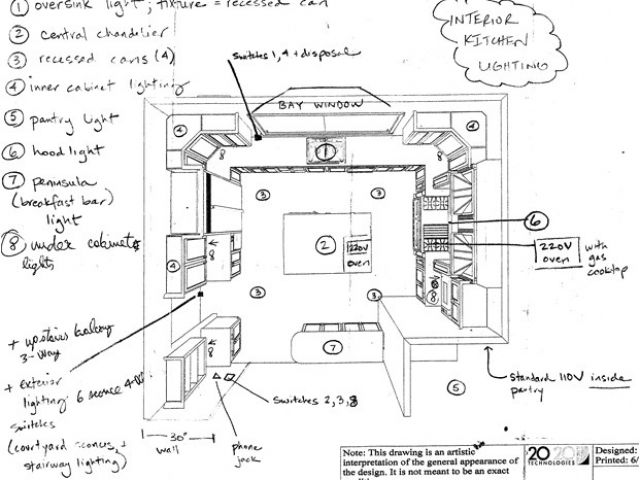 ① oversink light; fixture = recessed can
② central chandelier
③ recessed cans (4)
④ inner cabinet lighting
⑤ pantry light
⑥ hood light
⑦ peninsula
(breakfast bar)
light
⑧ under cabinets
lights
INTERIOR
KITCHEN
LIGHTING
Switches 1, 4 + disposal
BAY WINDOW
4
4
8
1
8
3
3
6
2
220V
oven
220V
oven
with
gas
cooktop
4
8
8
3
3
+ upstairs balcony
3-way
+ exterior
lighting: 6 sconce
switches
(courtyard sconces, +
stairway lighting)
8
7
5
Standard 110V inside
pantry
Switches 2, 3, 8
30"
wall
phone
jack
Note: This drawing is an artistic
interpretation of the general appearance of
the design. It is not meant to be an exact
20 20
TECHNOLOGIES
Designed:
Printed: 6/